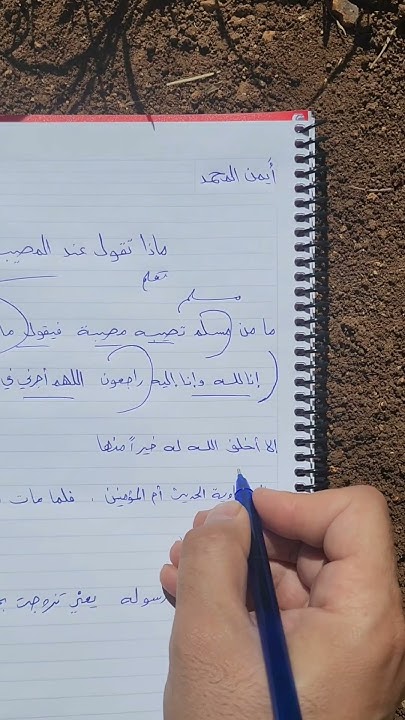 أيمن المحمد
ماذا تقول عند المصيب
تعلم
مسلم
ما من مسلم تصيبه مصيبة فيقول ما
إنا لله وإنا إليه راجعون اللهم أجرني في
إلا أخلف الله له خيراً منها
راوية الحديث أم المؤمنين . فلما مات
رسوله يعني تزوجت